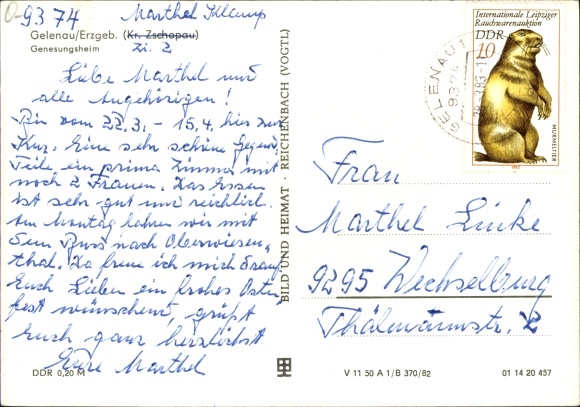 9374 Marthel
Gelenau/Erzgeb. (Kr. Zschopau)
Genesungsheim Zi. 2
Liebe Marthel und
alle Angehörigen!
Bin vom 22.3. - 15.4. hier zur
Kur. Eine sehr schöne Gegend,
Teile ein prima Zimmer mit
noch 2 Frauen. Das Essen
ist sehr gut und reichlich.
Am Montag fahren wir mit
dem Bus nach Oberwiesen-
thal. Da freue ich mich drauf.
Euch Lieben ein frohes Oster-
fest wünschend, grüßt
Euch ganz herzlichst
Eure Marthel
DDR 0,20 M
BILD UND HEIMAT · REICHENBACH (VOGTL)
Internationale Leipziger
Rauchwarenauktion
DDR
10
MURMELTIER
1982
GELENAU
9374
Frau
Marthel Linke
9295 Wechselburg
Thälmannstr. 2
V 11 50 A 1/B 370/82
01 14 20 457